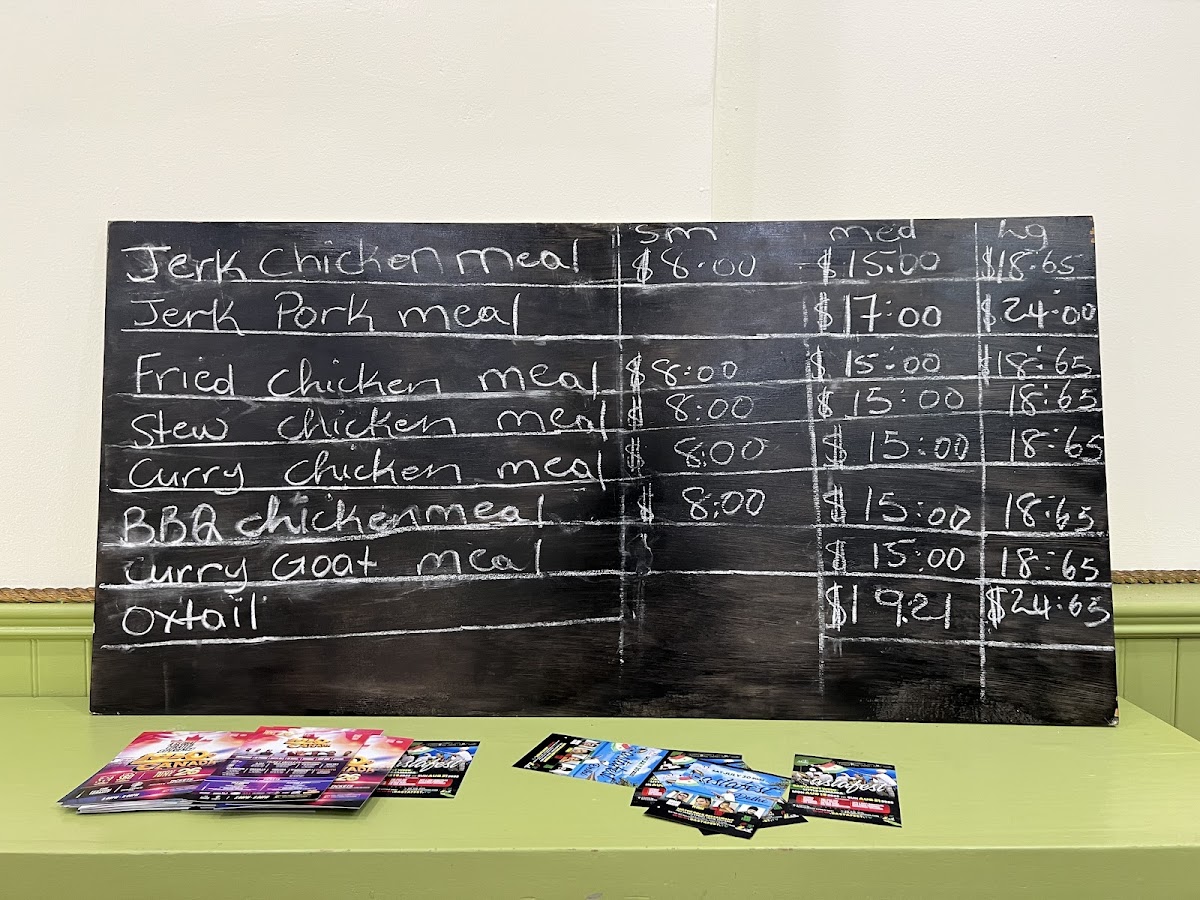 sm med hg
Jerk Chicken meal $8.00 $15.00 $18.65
Jerk Pork meal $17:00 $24:00
Fried chicken meal $8:00 $15:00 18:65
Stew chicken meal $8:00 $15:00 18:65
Curry chicken meal $8:00 $15:00 18:65
BBQ chicken meal $8:00 $15:00 18:65
Curry Goat meal $15:00 18:65
oxtail $19.21 $24:65